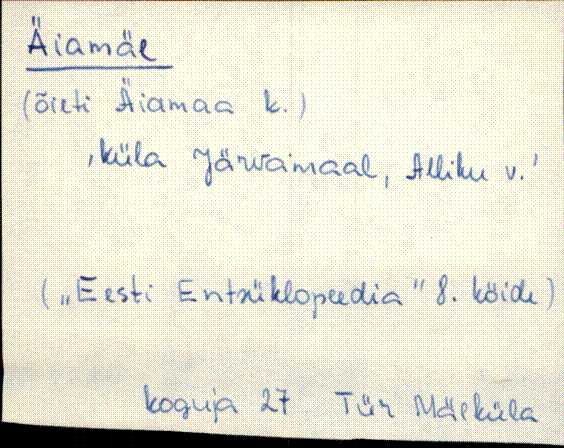 Äiamäe
(õieti Äiamaa k.)
'küla Järvamaal, Alliku v.'
("Eesti Entsüklopeedia" 8. köide)
koguja 27 Tür Mäeküla